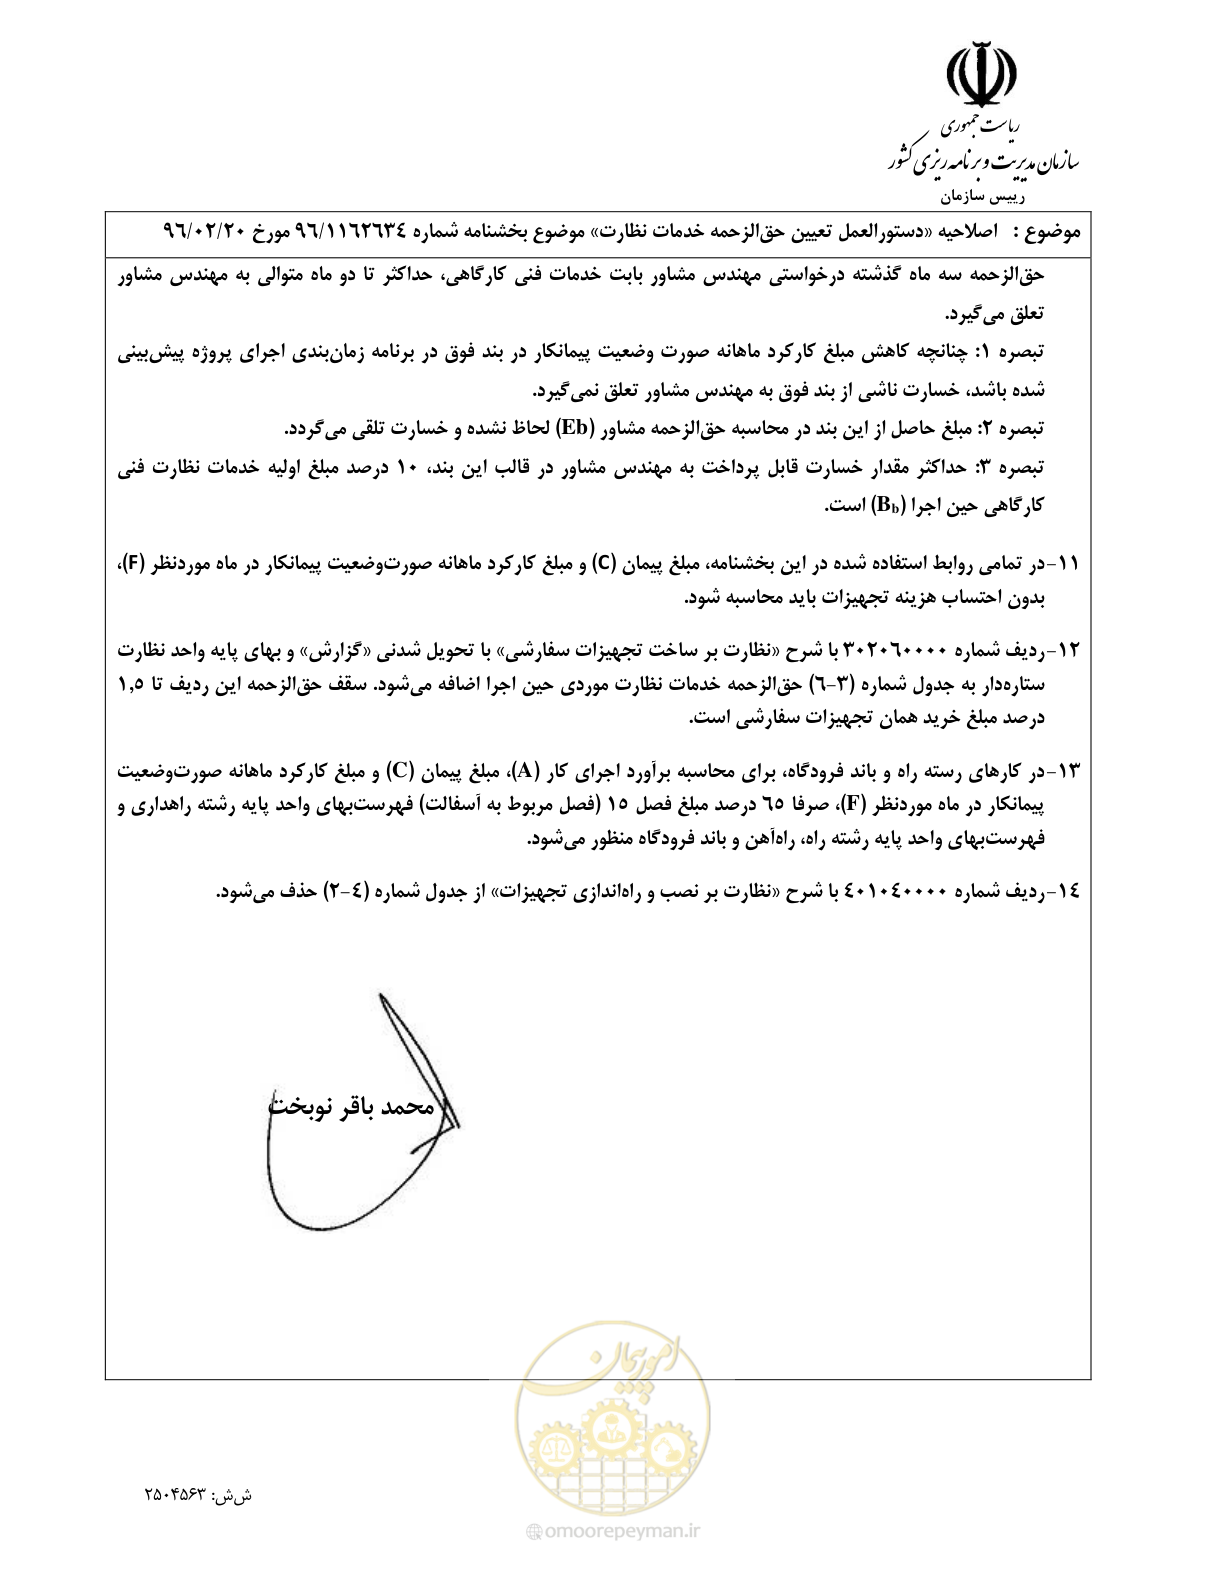 ریاست جمهوری
سازمان مدیریت و برنامه ریزی کشور
رییس سازمان
موضوع : اصلاحیه «دستورالعمل تعیین حق‌الزحمه خدمات نظارت» موضوع بخشنامه شماره ۹۶/۱۱۶۲۶۳۴ مورخ ۹۶/۰۲/۲۰
حق‌الزحمه سه ماه گذشته درخواستی مهندس مشاور بابت خدمات فنی کارگاهی، حداکثر تا دو ماه متوالی به مهندس مشاور
تعلق می‌گیرد.
تبصره ۱: چنانچه کاهش مبلغ کارکرد ماهانه صورت وضعیت پیمانکار در بند فوق در برنامه زمان‌بندی اجرای پروژه پیش‌بینی
شده باشد، خسارت ناشی از بند فوق به مهندس مشاور تعلق نمی‌گیرد.
تبصره ۲: مبلغ حاصل از این بند در محاسبه حق‌الزحمه مشاور (Eb) لحاظ نشده و خسارت تلقی می‌گردد.
تبصره ۳: حداکثر مقدار خسارت قابل پرداخت به مهندس مشاور در قالب این بند، ۱۰ درصد مبلغ اولیه خدمات نظارت فنی
کارگاهی حین اجرا (Bb) است.
۱۱-در تمامی روابط استفاده شده در این بخشنامه، مبلغ پیمان (C) و مبلغ کارکرد ماهانه صورت‌وضعیت پیمانکار در ماه موردنظر (F)،
بدون احتساب هزینه تجهیزات باید محاسبه شود.
۱۲-ردیف شماره ۳۰۲۰۶۰۰۰۰ با شرح «نظارت بر ساخت تجهیزات سفارشی» با تحویل شدنی «گزارش» و بهای پایه واحد نظارت
ستاره‌دار به جدول شماره (۳-۶) حق‌الزحمه خدمات نظارت موردی حین اجرا اضافه می‌شود. سقف حق‌الزحمه این ردیف تا ۱,۵
درصد مبلغ خرید همان تجهیزات سفارشی است.
۱۳-در کارهای رسته راه و باند فرودگاه، برای محاسبه برآورد اجرای کار (A)، مبلغ پیمان (C) و مبلغ کارکرد ماهانه صورت‌وضعیت
پیمانکار در ماه موردنظر (F)، صرفا ۶۵ درصد مبلغ فصل ۱۵ (فصل مربوط به آسفالت) فهرست‌بهای واحد پایه رشته راهداری و
فهرست‌بهای واحد پایه رشته راه، راه‌آهن و باند فرودگاه منظور می‌شود.
۱۴-ردیف شماره ۴۰۱۰۴۰۰۰۰ با شرح «نظارت بر نصب و راه‌اندازی تجهیزات» از جدول شماره (۴-۲) حذف می‌شود.
محمد باقر نوبخت
امور پیمان
ش‌ش: ۲۵۰۴۵۶۳
omoorepeyman.ir